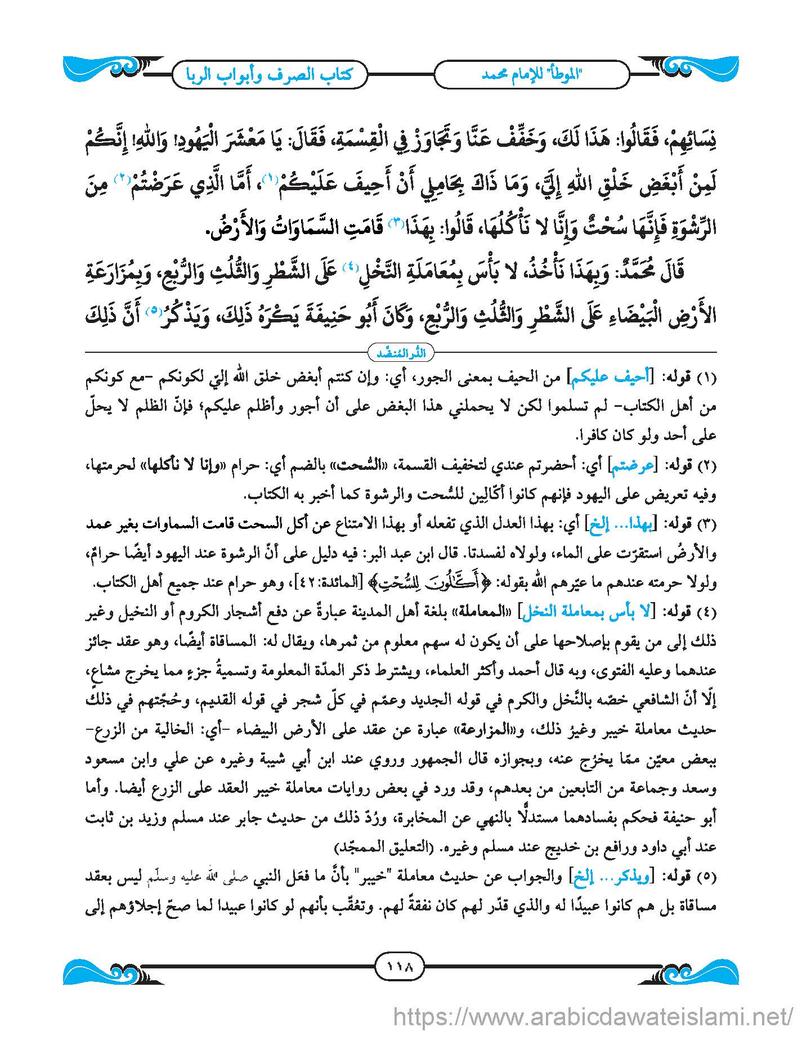 "الموطأ" للإمام محمد
كتاب الصرف وأبواب الربا
نِسَائِهِمْ، فَقَالُوا: هَذَا لَكَ، وَخَفِّفْ عَنَّا وَتَجَاوَزْ فِي الْقِسْمَةِ، فَقَالَ: يَا مَعْشَرَ الْيَهُودِ! وَاللهِ! إِنَّكُمْ
لَمِنْ أَبْغَضِ خَلْقِ اللهِ إِلَيَّ، وَمَا ذَاكَ بِحَامِلِي أَنْ أَحِيفَ عَلَيْكُمْ(١)، أَمَّا الَّذِي عَرَضْتُمْ(٢) مِنَ
الرِّشْوَةِ فَإِنَّهَا سُحْتٌ وَإِنَّا لا نَأْكُلُهَا، قَالُوا: بِهَذَا(٣) قَامَتِ السَّمَاوَاتُ وَالأَرْضُ.
قَالَ مُحَمَّدٌ: وَبِهَذَا نَأْخُذُ، لا بَأْسَ بِمُعَامَلَةِ النَّخْلِ(٤) عَلَى الشَّطْرِ وَالثُّلُثِ وَالرُّبْعِ، وَبِمُزَارَعَةِ
الأَرْضِ الْبَيْضَاءِ عَلَى الشَّطْرِ وَالثُّلُثِ وَالرُّبْعِ، وَكَانَ أَبُو حَنِيفَةَ يَكْرَهُ ذَلِكَ، وَيَذْكُرُ(٥) أَنَّ ذَلِكَ
الدُّر المُنضَّد
(١) قوله: [أحيف عليكم] من الحيف بمعنى الجور، أي: وإن كنتم أبغض خلق الله إليّ لكونكم -مع كونكم
من أهل الكتاب- لم تسلموا لكن لا يحملني هذا البغض على أن أجور وأظلم عليكم؛ فإنّ الظلم لا يحلّ
على أحد ولو كان كافرا.
(٢) قوله: [عرضتم] أي: أحضرتم عندي لتخفيف القسمة، «السُّحت» بالضم أي: حرام «وإنا لا نأكلها» لحرمتها،
وفيه تعريض على اليهود فإنهم كانوا أكّالين للسُّحت والرشوة كما أخبر به الكتاب.
(٣) قوله: [بهذا... إلخ] أي: بهذا العدل الذي تفعله أو بهذا الامتناع عن أكل السحت قامت السماوات بغير عمد
والأرضُ استقرّت على الماء، ولولاه لفسدتا. قال ابن عبد البر: فيه دليل على أنّ الرشوة عند اليهود أيضًا حرامٌ،
ولولا حرمته عندهم ما عيّرهم الله بقوله: ﴿أَكَّٰلُونَ لِلسُّحْتِ﴾ [المائدة:٤٢]، وهو حرام عند جميع أهل الكتاب.
(٤) قوله: [لا بأس بمعاملة النخل] «المعاملة» بلغة أهل المدينة عبارةٌ عن دفع أشجار الكروم أو النخيل وغير
ذلك إلى من يقوم بإصلاحها على أن يكون له سهم معلوم من ثمرها، ويقال له: المساقاة أيضًا، وهو عقد جائز
عندهما وعليه الفتوى، وبه قال أحمد وأكثر العلماء، ويشترط ذكر المدّة المعلومة وتسميةُ جزءٍ مما يخرج مشاع،
إلّا أنّ الشافعي خصّه بالنّخل والكرم في قوله الجديد وعمّم في كلّ شجر في قوله القديم، وحُجّتهم في ذلك
حديث معاملة خيبر وغيرُ ذلك، و«المزارعة» عبارة عن عقد على الأرض البيضاء -أي: الخالية من الزرع-
ببعض معيّن ممّا يخرُج عنه، وبجوازه قال الجمهور وروي عند ابن أبي شيبة وغيره عن علي وابن مسعود
وسعد وجماعة من التابعين من بعدهم، وقد ورد في بعض روايات معاملة خيبر العقد على الزرع أيضا. وأما
أبو حنيفة فحكم بفسادهما مستدلًّا بالنهي عن المخابرة، ورُدّ ذلك من حديث جابر عند مسلم وزيد بن ثابت
عند أبي داود ورافع بن خديج عند مسلم وغيره. (التعليق الممجّد)
(٥) قوله: [ويذكر... إلخ] والجواب عن حديث معاملة "خيبر" بأنَّ ما فعَل النبي صلى الله عليه وسلّم ليس بعقد
مساقاة بل هم كانوا عبيدًا له والذي قدّر لهم كان نفقةً لهم. وتعُقّب بأنهم لو كانوا عبيدا لما صحّ إجلاؤهم إلى
١١٨
https://www.arabicdawateislami.net/